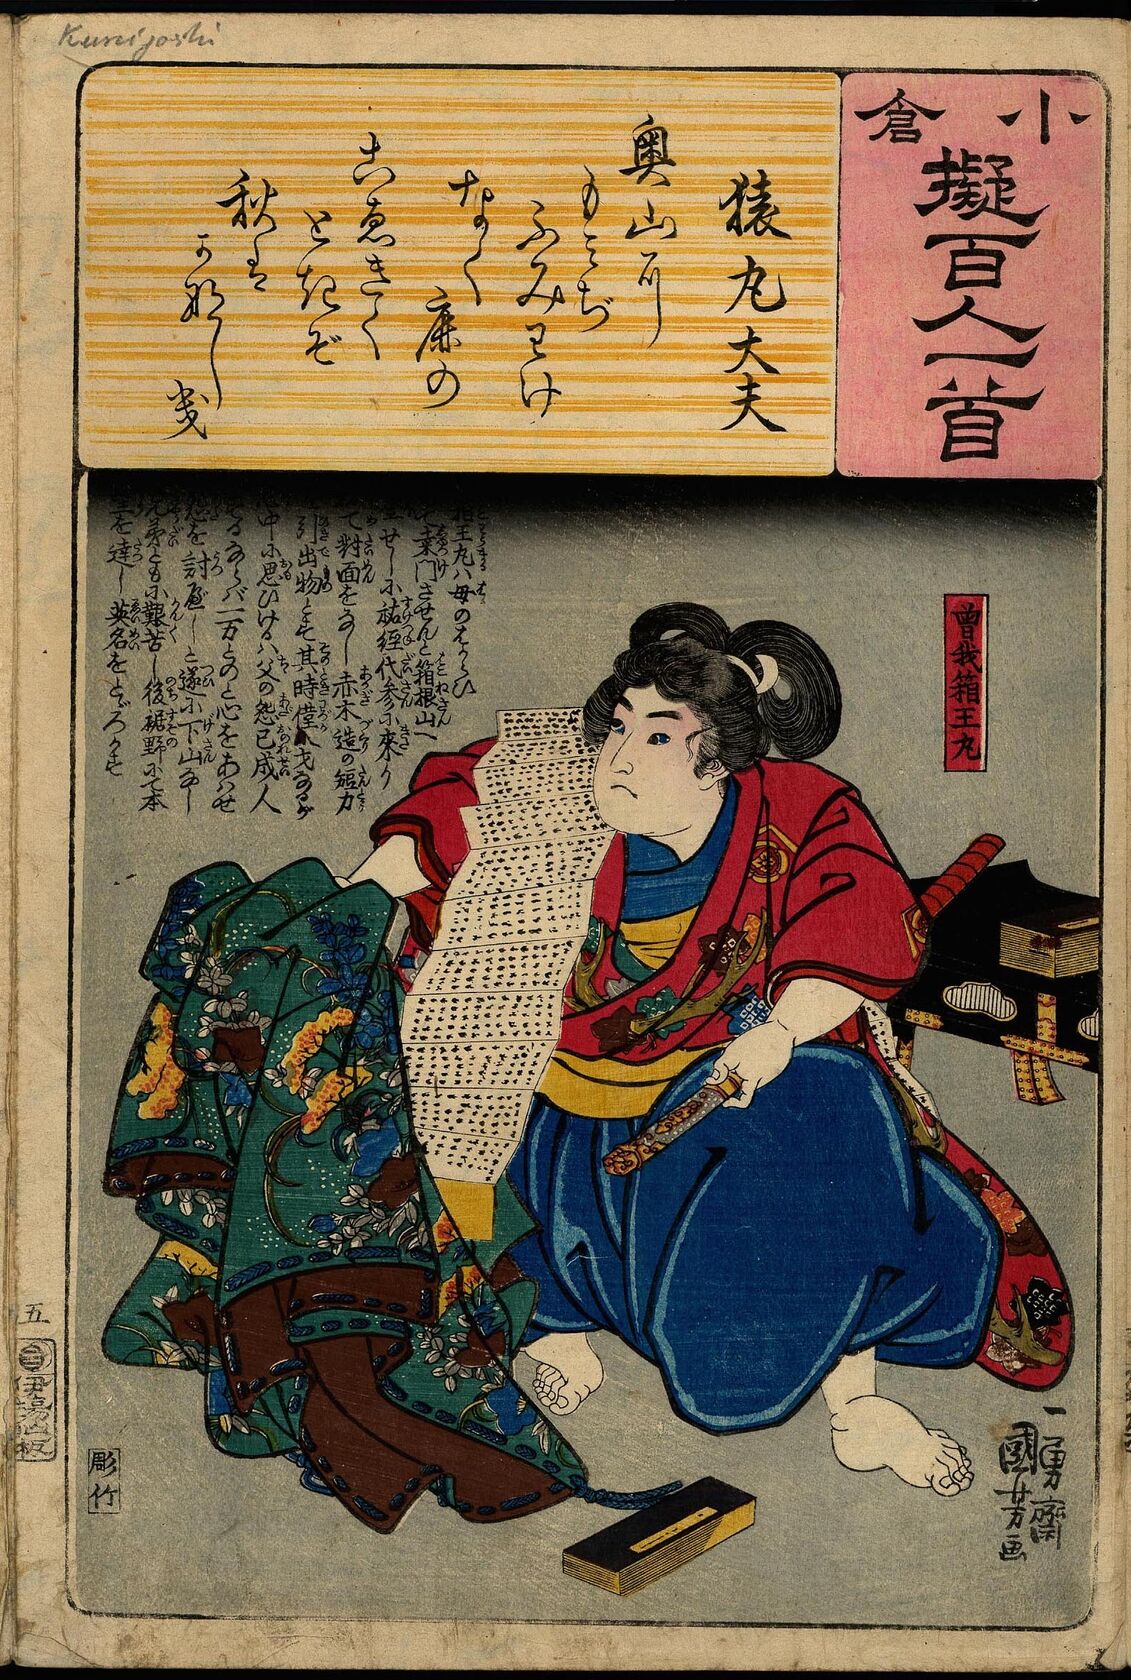 Kuniyoshi
小倉
擬百人一首
猿丸大夫
奥山に
もみぢ
ふみわけ
なく鹿の
こゑきく
ときぞ
秋は
かなしき
曽我箱王丸
箱王丸ハ母のはからひ
にて桒門させんと箱根山へ
登せしに祐経代参に来り
て對面をなし赤木造の短刀
を引出物とす其時僅八才なるが
心中に思ひけるハ父の怨已成人
するならバ一万とのと心をあハせ
怨を討べしと遂に下山なし
兄弟ともに艱苦し後裾野にて本
望を達し英名をとゞろかす
一勇齋
國芳画
五
伊場仙板
彫竹